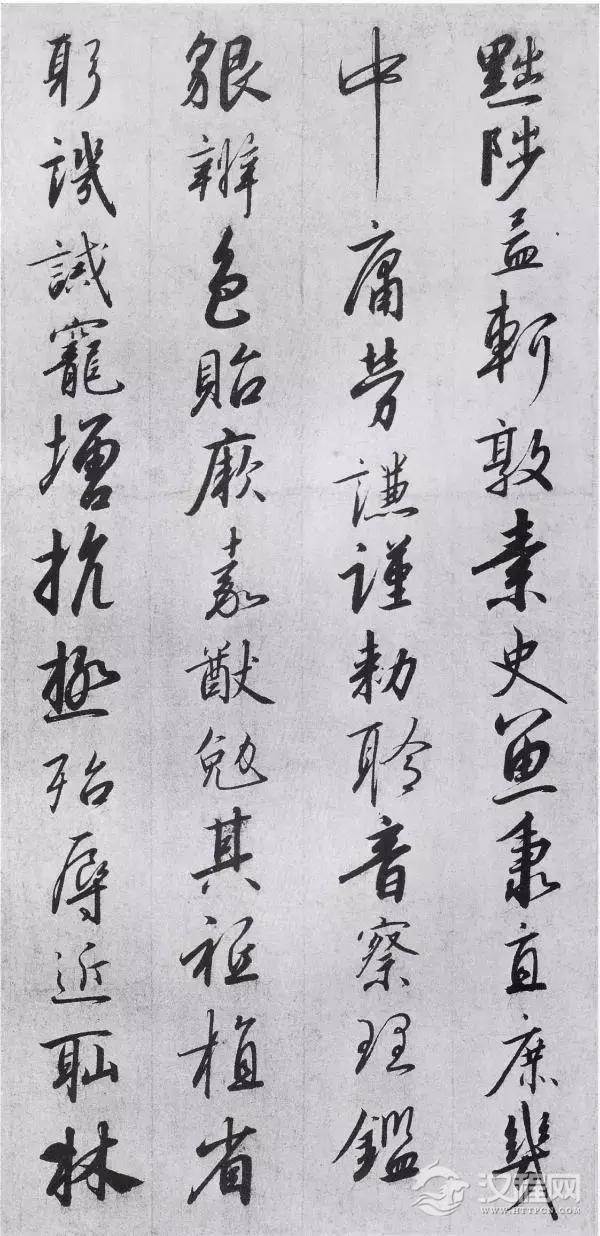 黜陟孟軻敦素史魚秉直庶幾
中庸勞謙謹勑聆音察理鑑
貌辨色貽厥嘉猷勉其祗植省
躬譏誡寵增抗極殆辱近耻林
汉程网
WWW.HTTPCN.COM